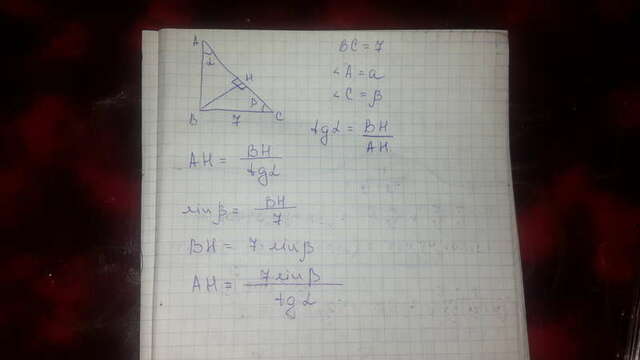 A
α
H
β
B
7
C
BC = 7
∠A = α
∠C = β
tgα = BH / AH
AH = BH / tgα
sinβ = BH / 7
BH = 7·sinβ
AH = 7sinβ / tgα